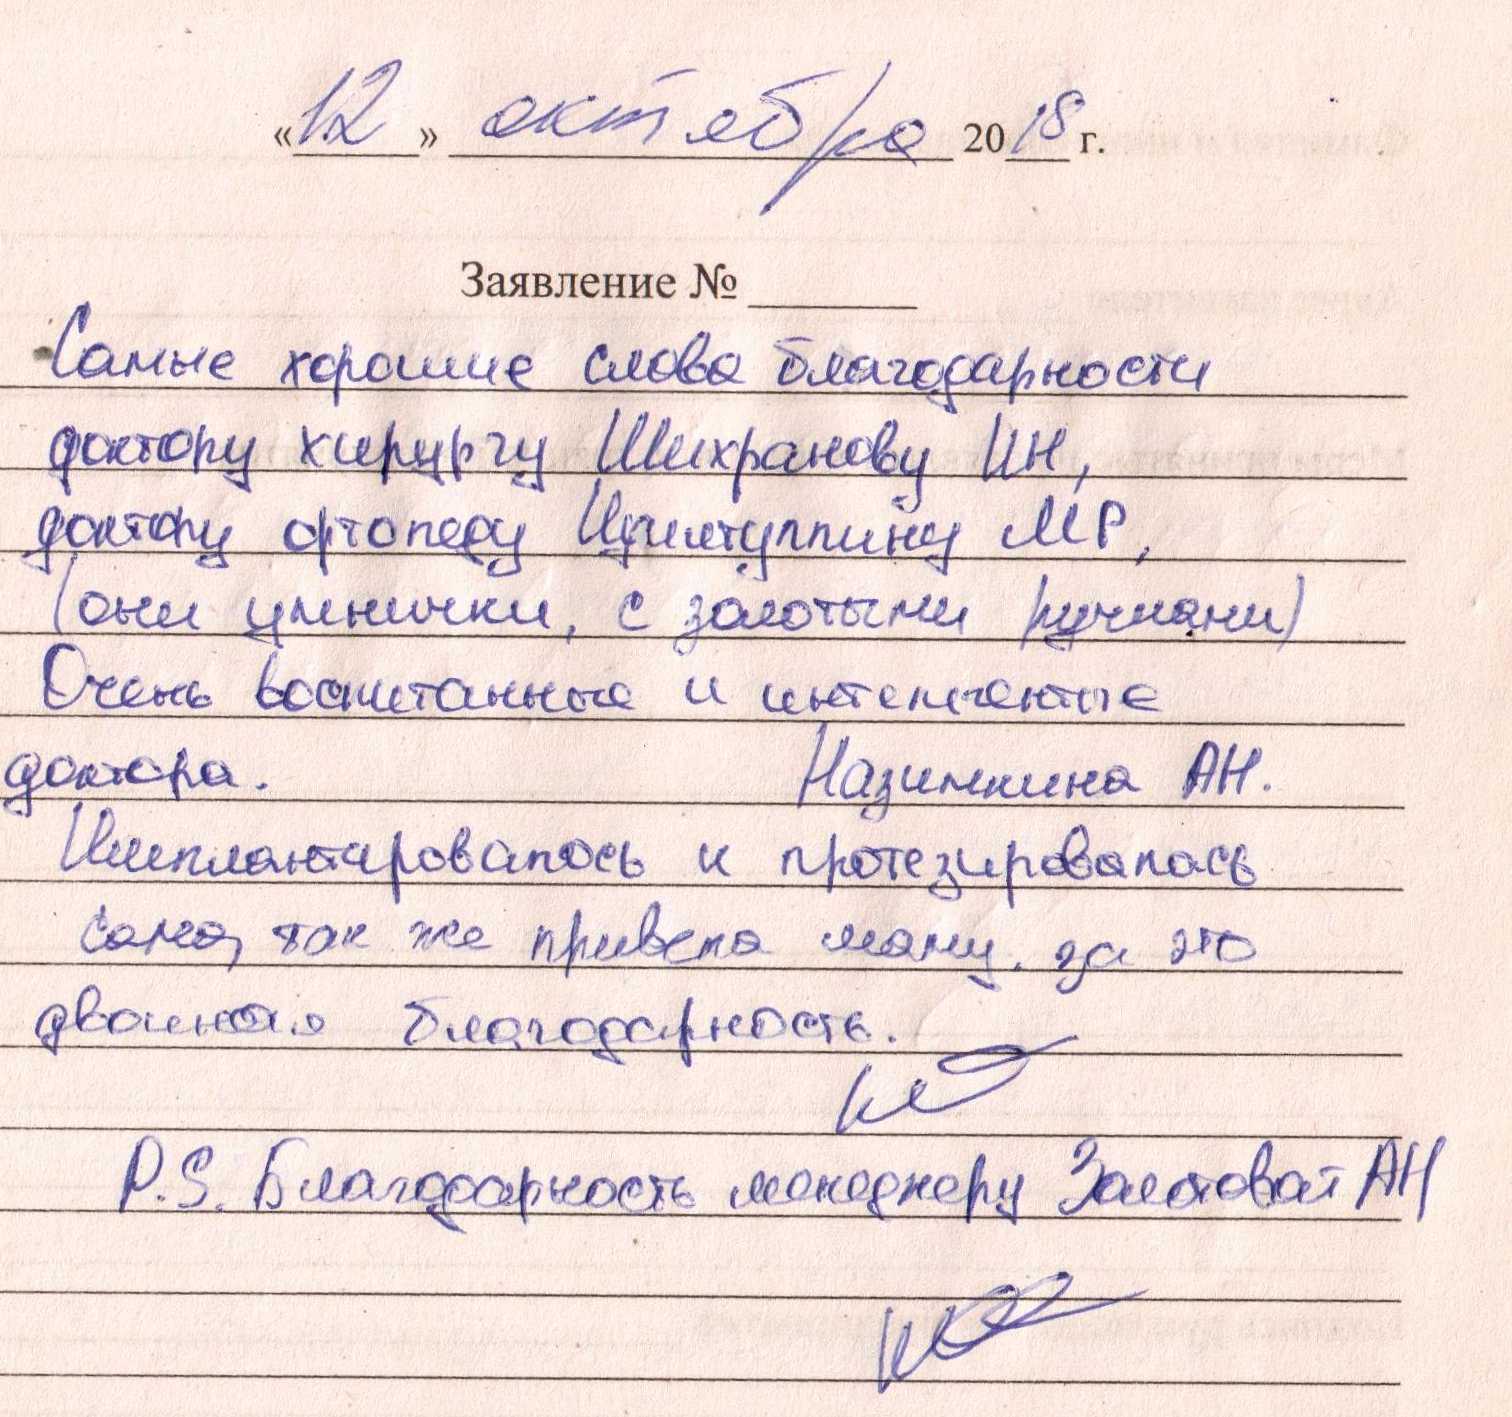 «12» октября 2018 г.
Заявление № ______
Самые хорошие слова благодарности
доктору хирургу Шихранову ИН,
доктору ортопеду МР,
(они умнички, с золотыми ручками)
Очень воспитанные и интелигентные
доктора. Назимкина АН.
Имплантировалось и протезировалась
сама, так же привела маму. за это
двойная благодарность.
P.S. Благодарность менеджеру АН